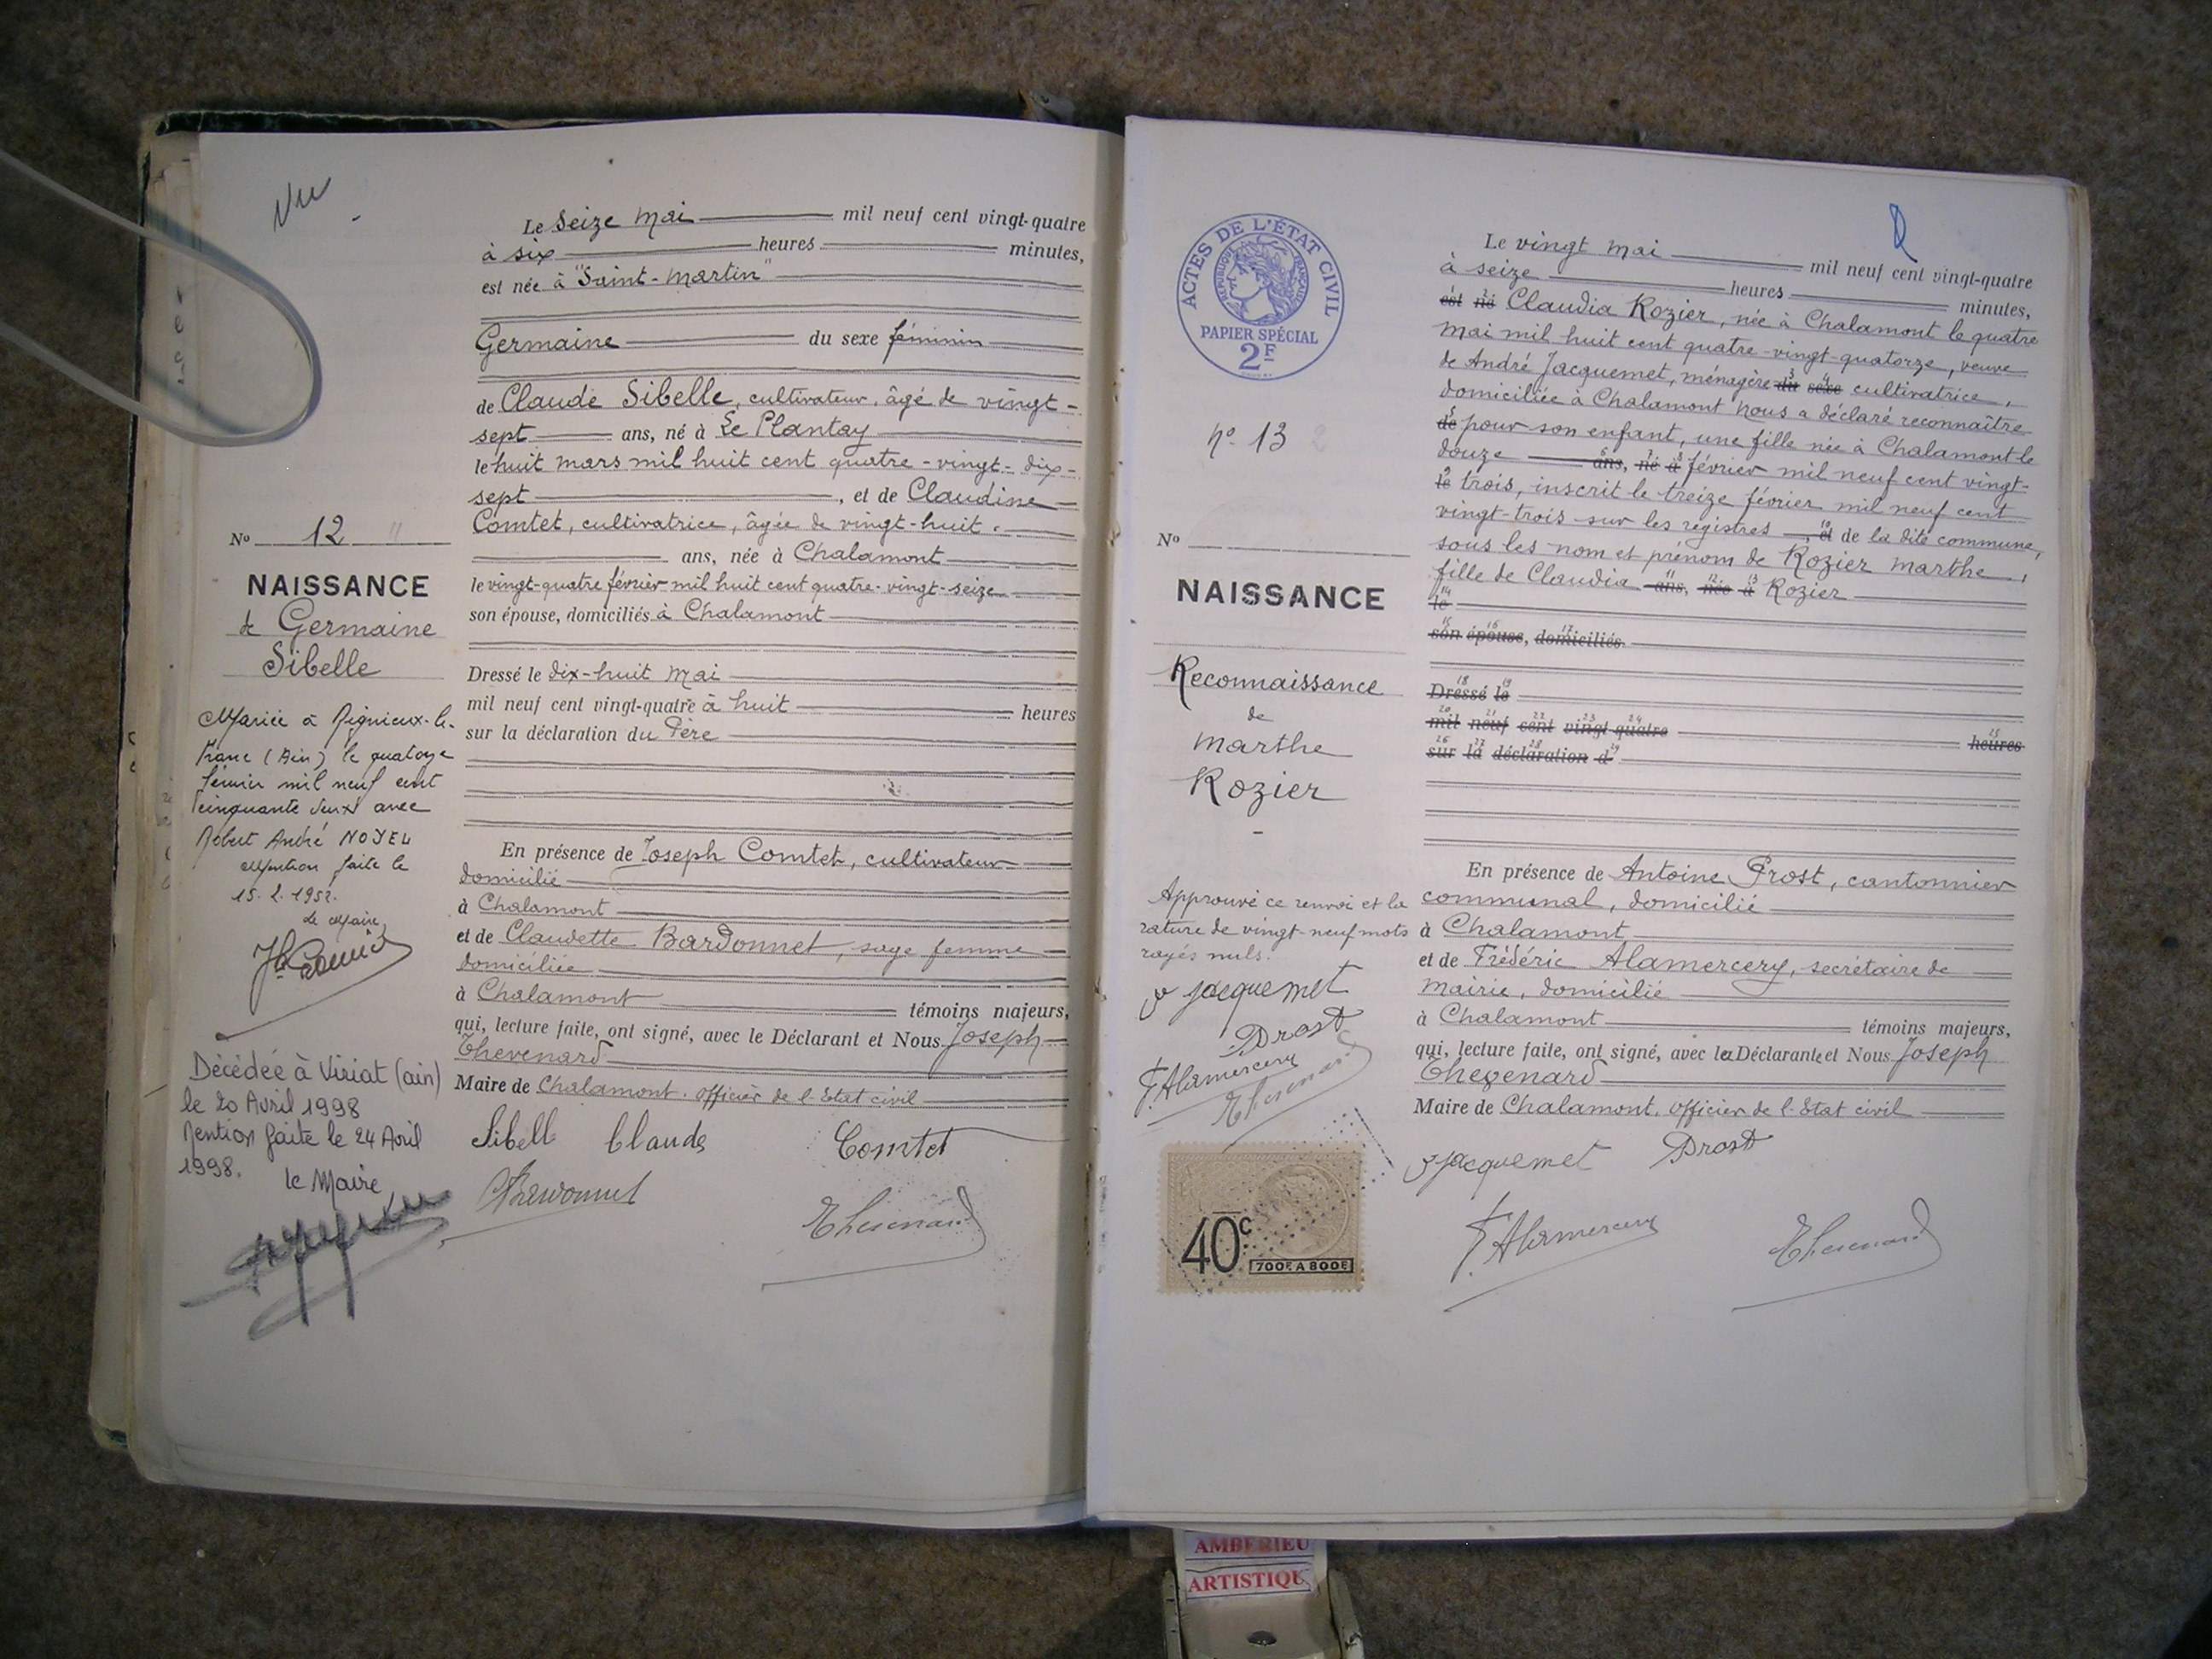 Vu
Le Seize Mai mil neuf cent vingt-quatre
à six heures minutes,
est née à "Saint-Martin"
Germaine du sexe féminin
de Claude Sibelle, cultivateur, âgé de vingt-
sept ans, né à Le Plantay
le huit mars mil huit cent quatre-vingt-dix-
sept, et de Claudine
Comtet, cultivatrice, âgée de vingt-huit
ans, née à Chalamont
le vingt-quatre février mil huit cent quatre-vingt-seize
son épouse, domiciliés à Chalamont
Dressé le dix-huit Mai
mil neuf cent vingt-quatre à huit heures
sur la déclaration du Père
En présence de Joseph Comtet, cultivateur
domicilié
à Chalamont
et de Claudette Bardonnet, sage femme
domiciliée
à Chalamont témoins majeurs,
qui, lecture faite, ont signé, avec le Déclarant et Nous Joseph
Thevenard
Maire de Chalamont. Officier de l'Etat civil
Sibell Claude Comtet
Thevenard
No 12
NAISSANCE
de Germaine
Sibelle
Mariée à Rignieux-le-
Franc (Ain) le quatorze
février mil neuf cent
cinquante deux avec
Robert André NOYEL
Mention faite le
15.2.1952.
Le Maire,
Décédée à Viriat (ain)
le 20 Avril 1998
Mention faite le 24 Avril
1998.
le Maire
ACTES DE L'ÉTAT CIVIL
RÉPUBLIQUE FRANÇAISE
PAPIER SPÉCIAL
2F
No 13
No
NAISSANCE
Reconnaissance
de
Marthe
Rozier
Approuvé ce renvoi et la
rature de vingt-neuf mots
rayés nuls.
Jacquemet
Prost
F. Alamercery
Thevenard
40c
700F A 800F
Le vingt Mai mil neuf cent vingt-quatre
à seize heures minutes,
est né Claudia Rozier, née à Chalamont le quatre
Mai mil huit cent quatre-vingt-quatorze, veuve
de André Jacquemet, ménagère du sexe cultivatrice,
domiciliée à Chalamont Nous a déclaré reconnaître
de pour son enfant, une fille née à Chalamont le
douze ans, né à février mil neuf cent vingt-
le trois, inscrit le treize février mil neuf cent
vingt-trois sur les registres, et de la dite commune,
sous les nom et prénom de Rozier Marthe,
fille de Claudia ans, née à Rozier
le
son épouse, domiciliés
Dressé le
mil neuf cent vingt-quatre heures
sur la déclaration d
En présence de Antoine Prost, cantonnier
communal, domicilié
à Chalamont
et de Frédéric Alamercery, secrétaire de
Mairie, domicilié
à Chalamont témoins majeurs,
qui, lecture faite, ont signé, avec la Déclarante et Nous Joseph
Thevenard
Maire de Chalamont. Officier de l'Etat civil
Jacquemet Prost
F. Alamercery Thevenard
AMBERIEU
ARTISTIQU